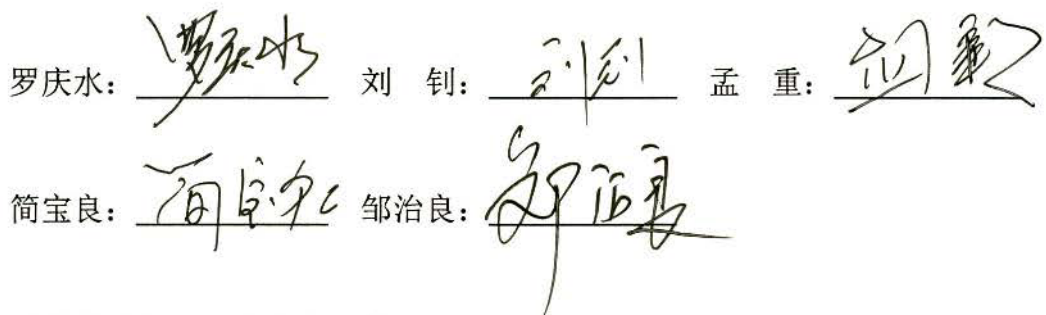 罗庆水： 罗庆水 刘 钊： 刘钊 孟 重：
简宝良： 邹治良： 邹治良